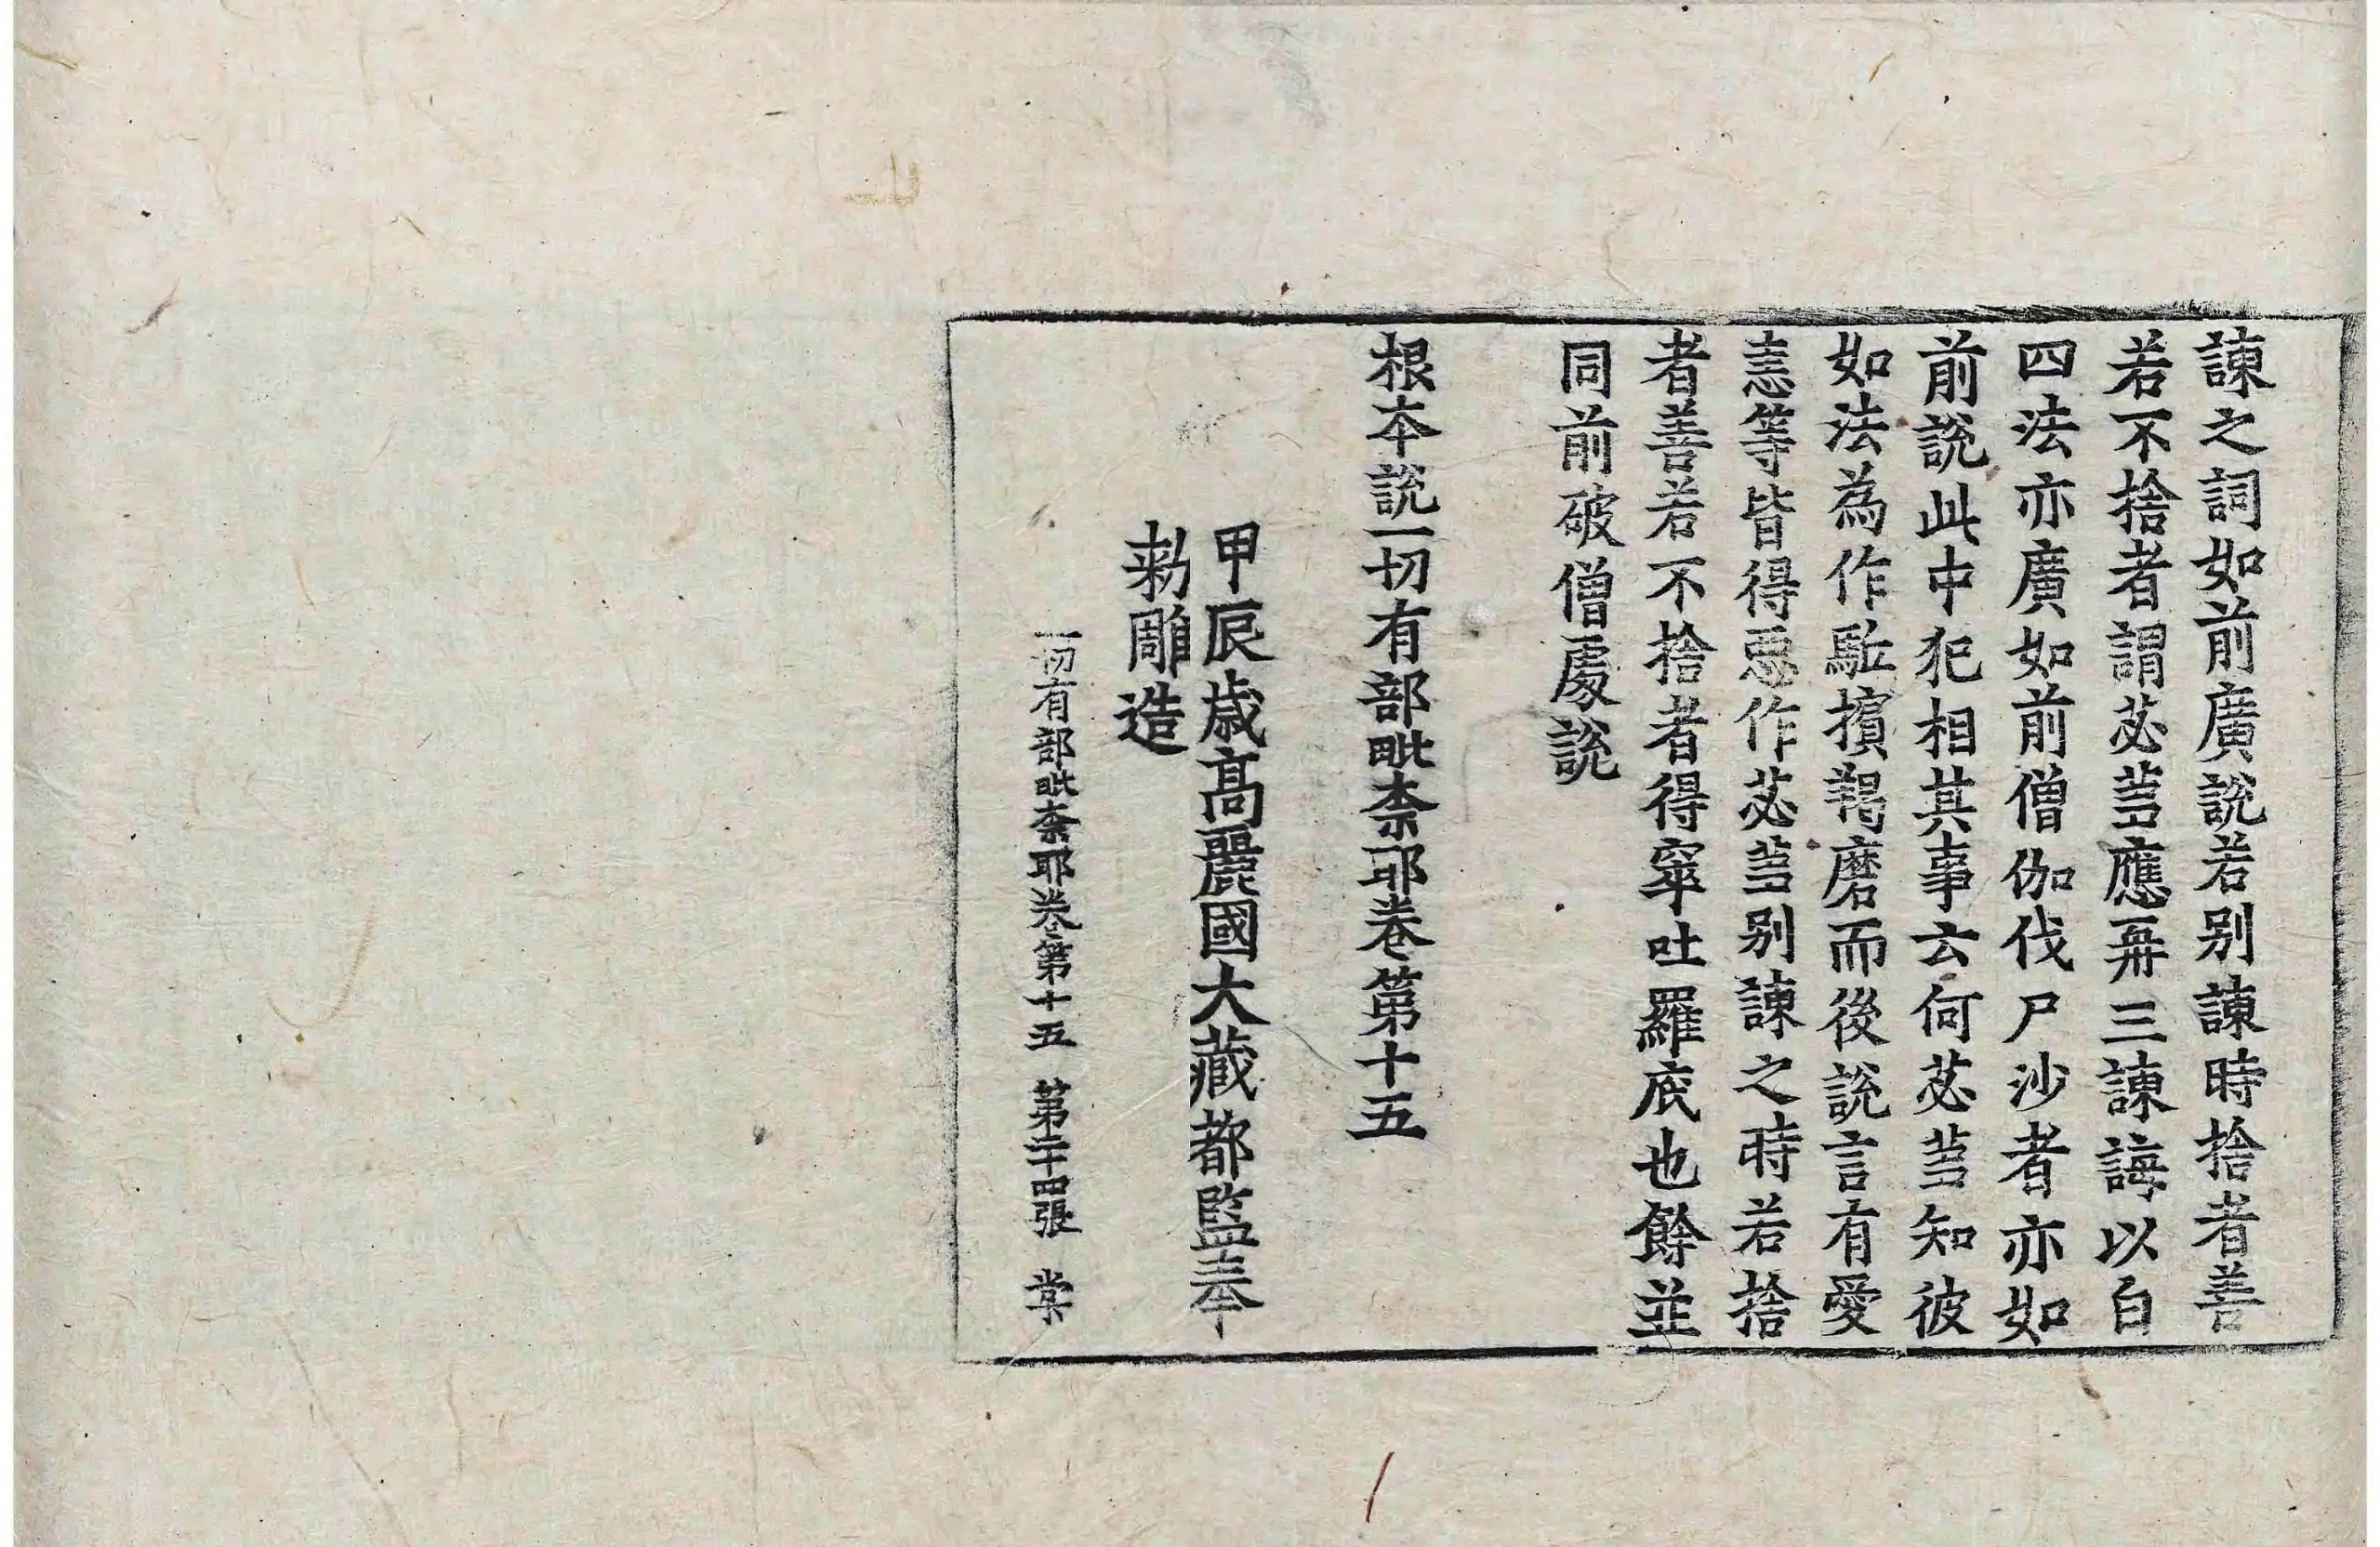 諫之詞如前廣說若別諫時捨者善
若不捨者謂苾芻應再三諫誨以白
四法亦廣如前僧伽伐尸沙者亦如
前說此中犯相其事云何苾芻知彼
如法為作駈擯羯磨而後說言有愛
恚等皆得惡作苾芻别諫之時若捨
者善若不捨者得窣吐羅底也餘並
同前破僧處說
根本說一切有部毗奈耶卷第十五
甲辰歲高麗國大藏都監奉
勑雕造
一切有部毗奈耶卷第十五 第二十四張 棠